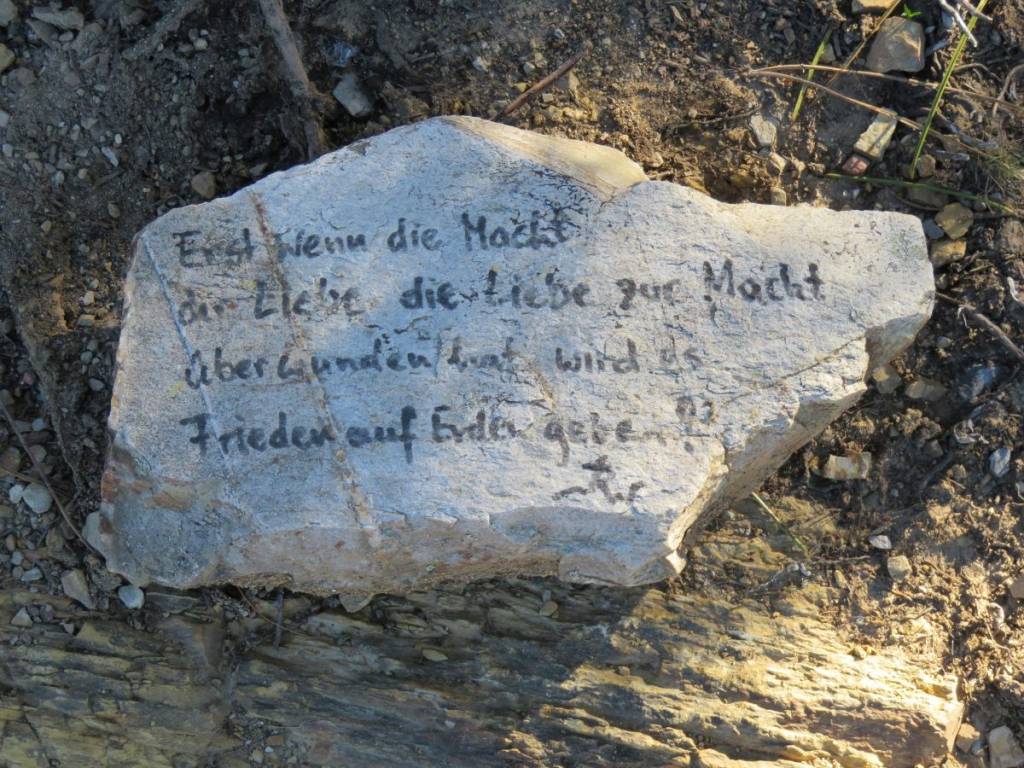 Erst wenn die Macht
der Liebe die Liebe zur Macht
überwunden hat wird es
Frieden auf Erden geben